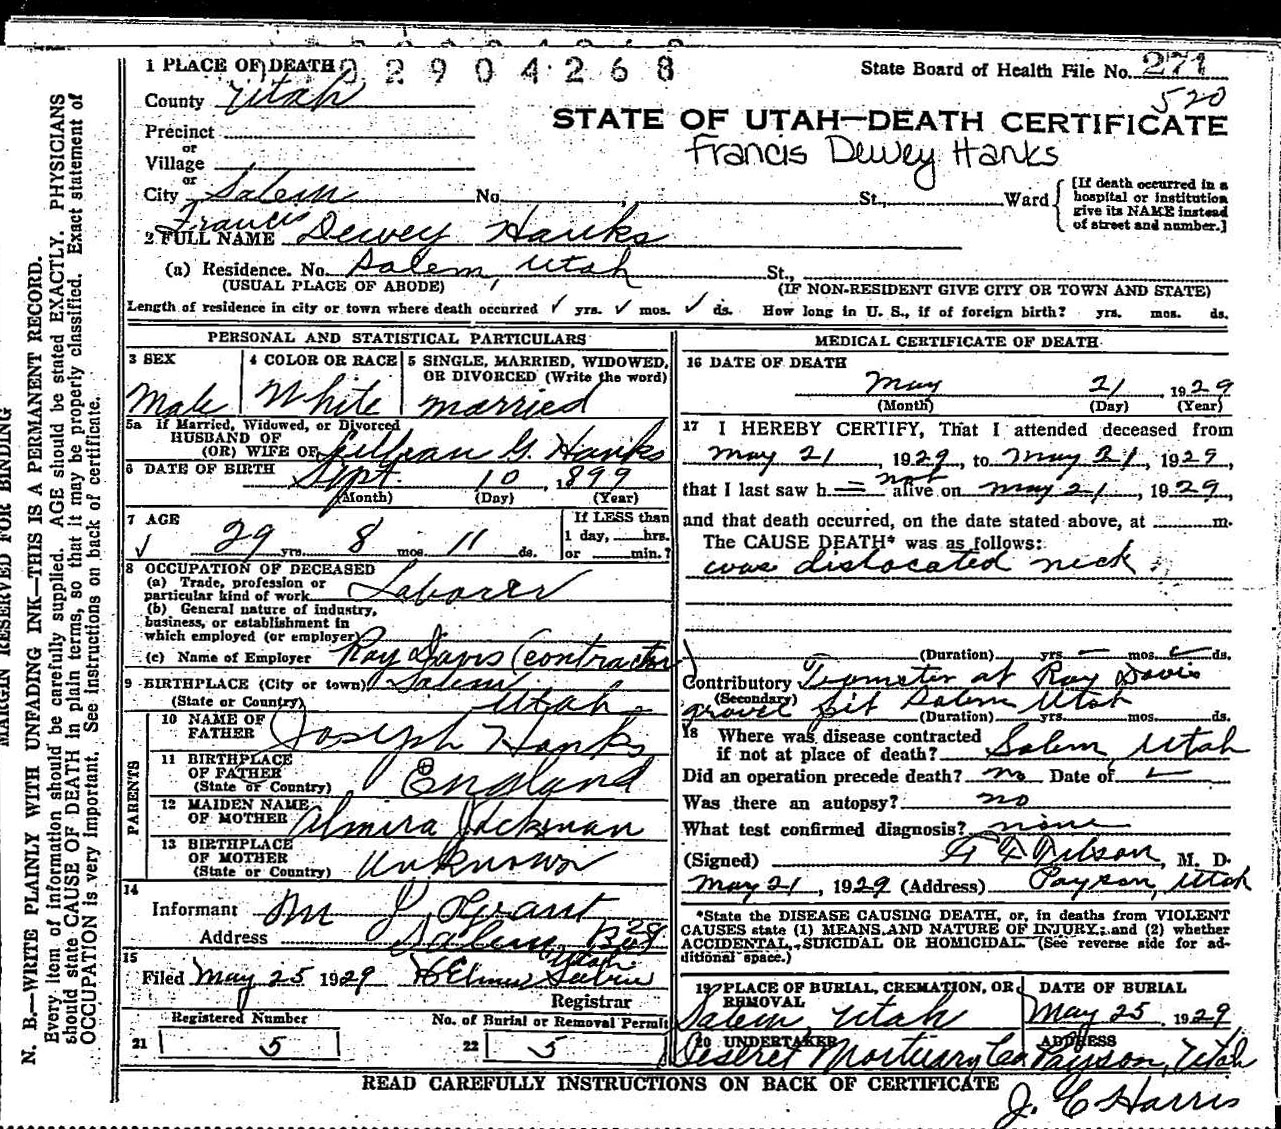 2904268
1 PLACE OF DEATH
State Board of Health File No. 271
520
County Utah
STATE OF UTAH—DEATH CERTIFICATE
Francis Dewey Hanks
Precinct
or
Village
or
City Salem No. St., Ward
[If death occurred in a hospital or institution give its NAME instead of street and number.]
Francis
2 FULL NAME Dewey Hanks
(a) Residence. No. Salem, Utah St.,
(USUAL PLACE OF ABODE) (IF NON-RESIDENT GIVE CITY OR TOWN AND STATE)
Length of residence in city or town where death occurred ✓ yrs. ✓ mos. ✓ ds. How long in U. S., if of foreign birth? yrs. mos. ds.
PERSONAL AND STATISTICAL PARTICULARS
3 SEX
Male
4 COLOR OR RACE
White
5 SINGLE, MARRIED, WIDOWED, OR DIVORCED (Write the word)
married
5a If Married, Widowed, or Divorced
HUSBAND OF
(OR) WIFE OF Lillian G. Hanks
6 DATE OF BIRTH Sept. 10, 1899
(Month) (Day) (Year)
7 AGE
✓ 29 yrs. 8 mos. 11 ds.
If LESS than
1 day, hrs.
or min.?
8 OCCUPATION OF DECEASED
(a) Trade, profession or
particular kind of work Laborer
(b) General nature of industry,
business, or establishment in
which employed (or employer)
(c) Name of Employer Roy Davis (contractor)
9 BIRTHPLACE (City or town) Salem
(State or Country) Utah
PARENTS
10 NAME OF
FATHER Joseph Hanks
11 BIRTHPLACE
OF FATHER
(State or Country) England
12 MAIDEN NAME
OF MOTHER Almira Hickman
13 BIRTHPLACE
OF MOTHER
(State or Country) Unknown
14
Informant Mr J. Grant
Address Salem, Box 29
Utah
15
Filed May 25 1929 H Elmer
Registrar
Registered Number
21 5
No. of Burial or Removal Permit
22 5
MEDICAL CERTIFICATE OF DEATH
16 DATE OF DEATH
May 21 1929
(Month) (Day) (Year)
17 I HEREBY CERTIFY, That I attended deceased from
May 21, 1929, to May 21, 1929,
not
that I last saw h alive on May 21, 1929,
and that death occurred, on the date stated above, at m.
The CAUSE DEATH* was as follows:
was dislocated neck
(Duration) yrs. mos. ds.
Contributory Teamster at Roy Davis
(Secondary)
gravel pit Salem Utah
(Duration) yrs. mos. ds.
18 Where was disease contracted
if not at place of death? Salem, Utah
Did an operation precede death? no Date of
Was there an autopsy? no
What test confirmed diagnosis? none
(Signed) Wilson, M. D.
May 21, 1929 (Address) Payson, Utah
*State the DISEASE CAUSING DEATH, or, in deaths from VIOLENT
CAUSES state (1) MEANS AND NATURE OF INJURY; and (2) whether
ACCIDENTAL, SUICIDAL OR HOMICIDAL (See reverse side for ad-
ditional space.)
19 PLACE OF BURIAL, CREMATION, OR
REMOVAL
Salem, Utah
DATE OF BURIAL
May 25, 1929
20 UNDERTAKER
Deseret Mortuary Co
ADDRESS
Payson, Utah
READ CAREFULLY INSTRUCTIONS ON BACK OF CERTIFICATE
J. E Harris
MARGIN RESERVED FOR BINDING
N. B.—WRITE PLAINLY WITH UNFADING INK—THIS IS A PERMANENT RECORD.
Every item of information should be carefully supplied. AGE should be stated EXACTLY. PHYSICIANS
should state CAUSE OF DEATH in plain terms, so that it may be properly classified. Exact statement of
OCCUPATION is very important. See instructions on back of certificate.